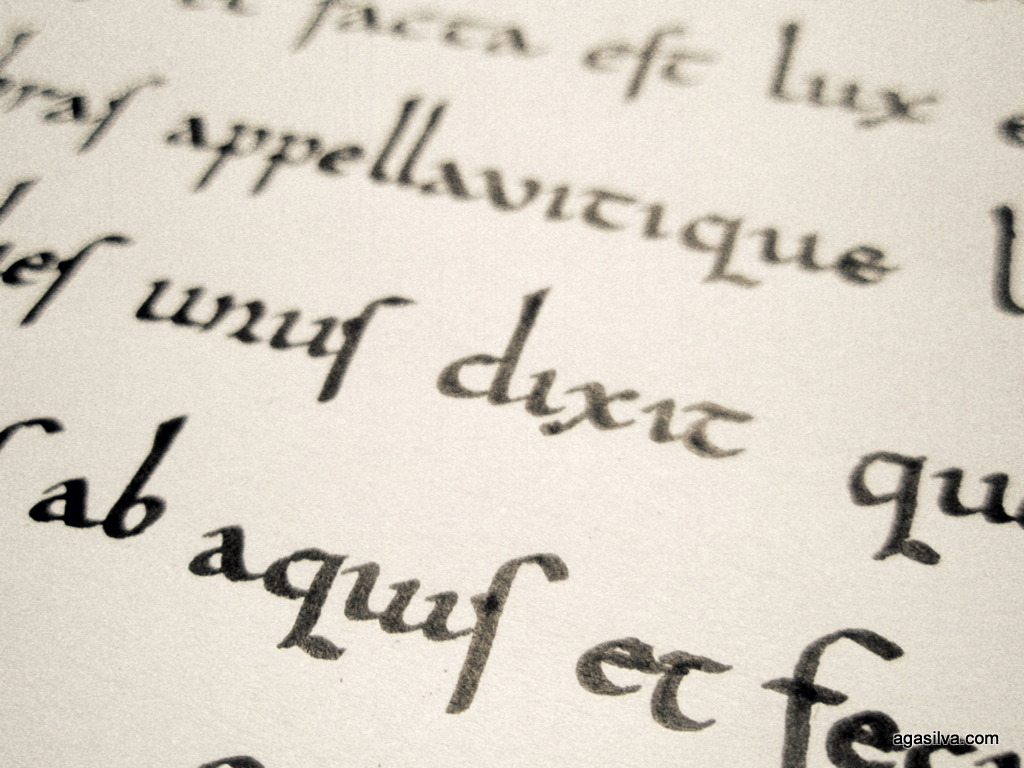 facta eſt lux e
braſ appellavitique
ieſ unuſ dixit qu
ſ ab aquiſ et fec
agasilva.com